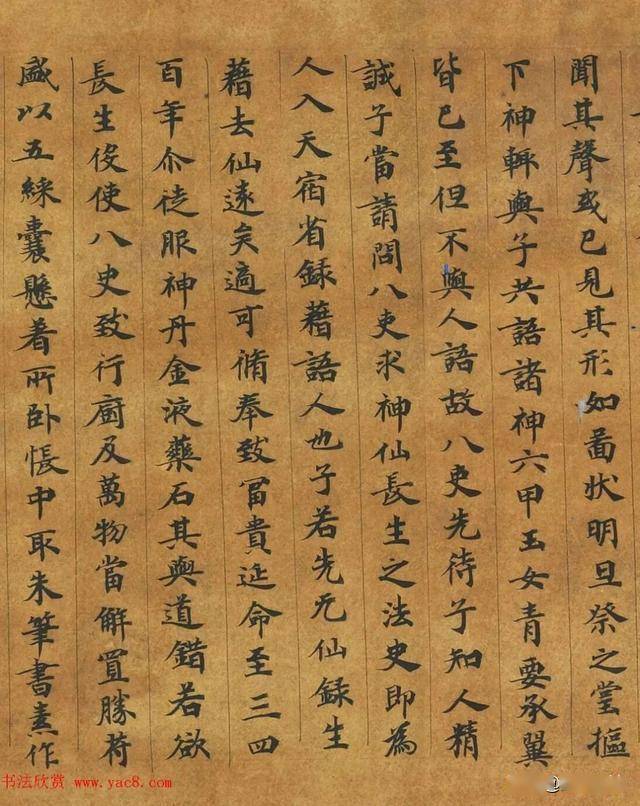 聞其聲或已見其形如啚狀明旦祭之當摳
下神輧與子共語諸神六甲玉女青要承翼
皆已至但不與人語故八吏先待子知人精
誠子當請問八吏求神仙長生之法史即為
人入天宿省録藉語人也子若先无仙録生
藉去仙遠矣適可脩奉致冨貴延命至三四
百年尒徒服神丹金液藥石其與道錯若欲
長生役使八史致行廚及萬物當解置勝苻
盛以五綵囊懸着所卧悵中取朱筆書素作
书法欣赏 www.yac8.com